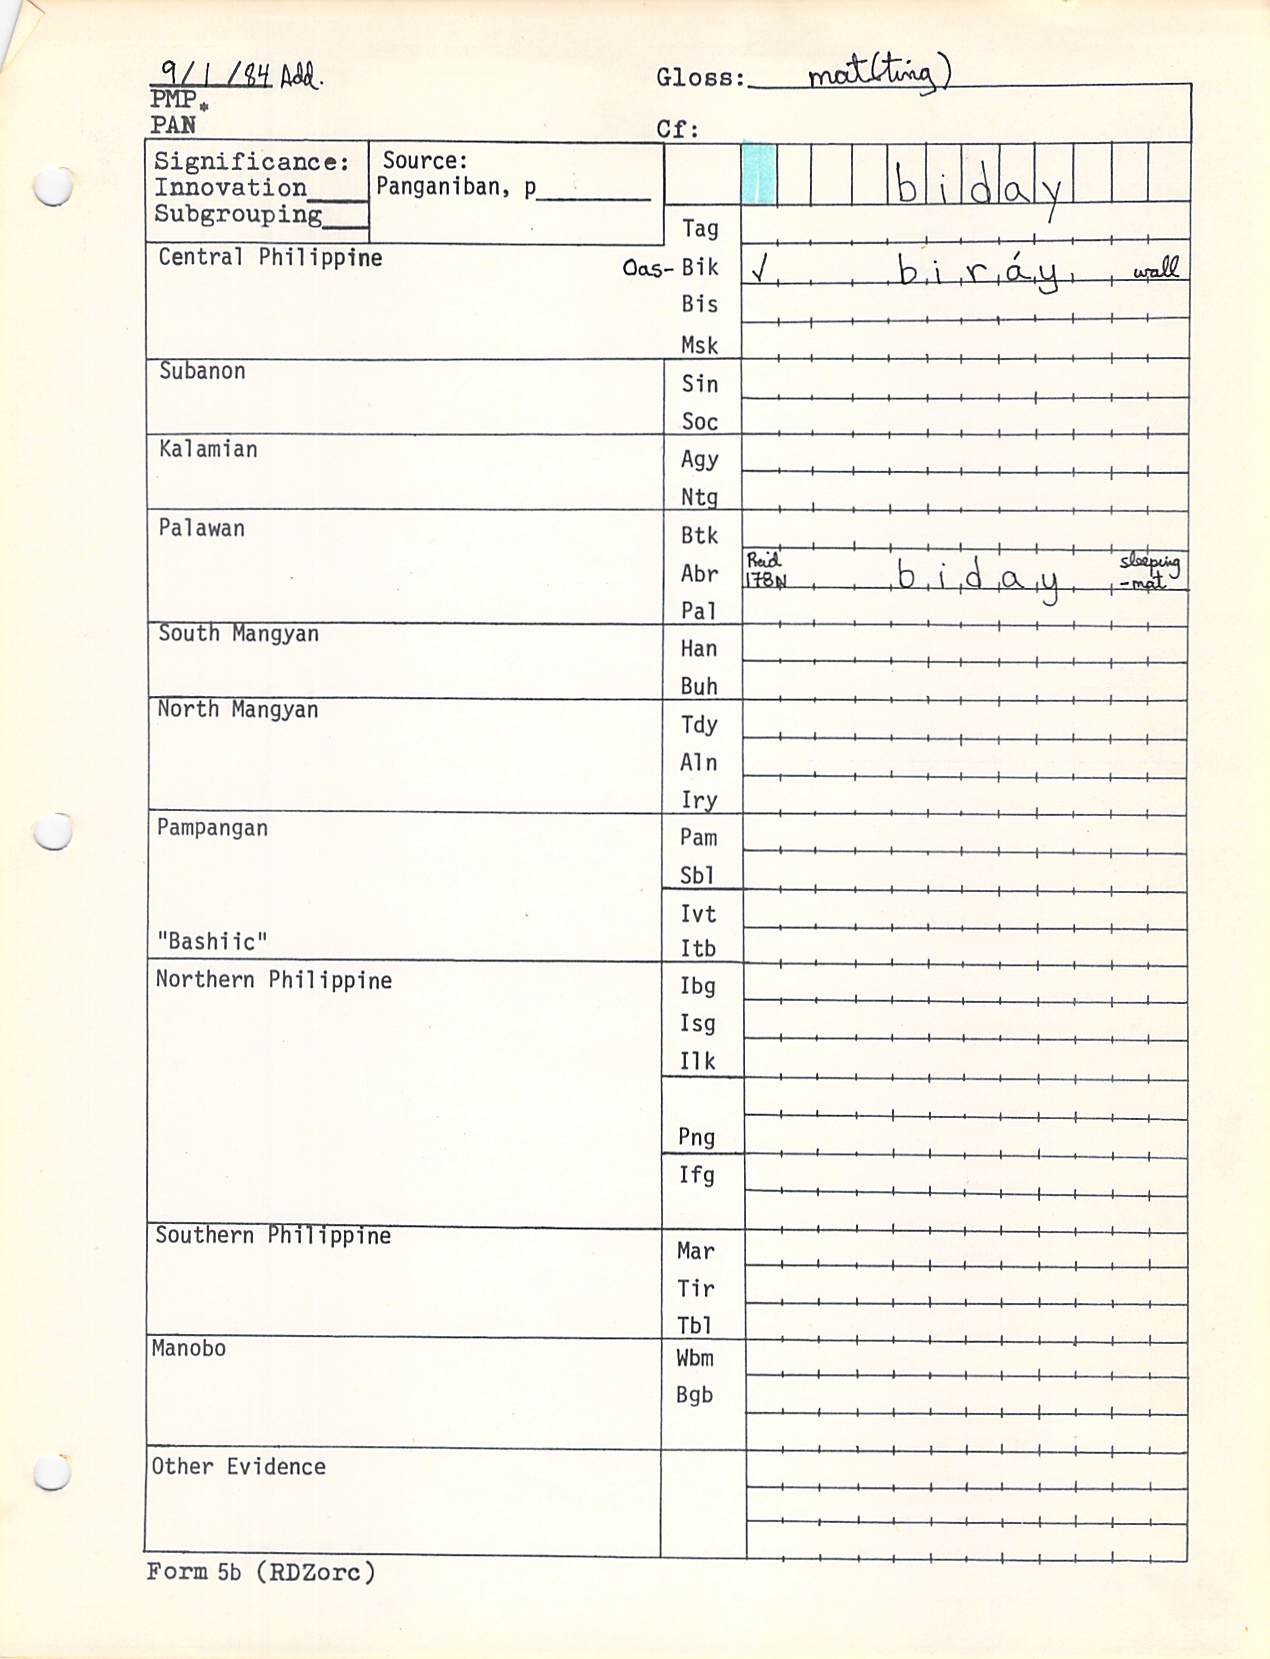 9/1/84 Add.
Gloss: mat(ting)
PMP *
PAN
Cf:
Significance:
Innovation
Subgrouping
Source:
Panganiban, p
biday
Tag
Central Philippine
Oas- Bik ✓ biráy wall
Bis
Msk
Subanon
Sin
Soc
Kalamian
Agy
Ntg
Palawan
Btk
Abr Reid 178N biday sleeping-mat
Pal
South Mangyan
Han
Buh
North Mangyan
Tdy
Aln
Iry
Pampangan
Pam
Sbl
Ivt
"Bashiic"
Itb
Northern Philippine
Ibg
Isg
Ilk
Png
Ifg
Southern Philippine
Mar
Tir
Tbl
Manobo
Wbm
Bgb
Other Evidence
Form 5b (RDZorc)